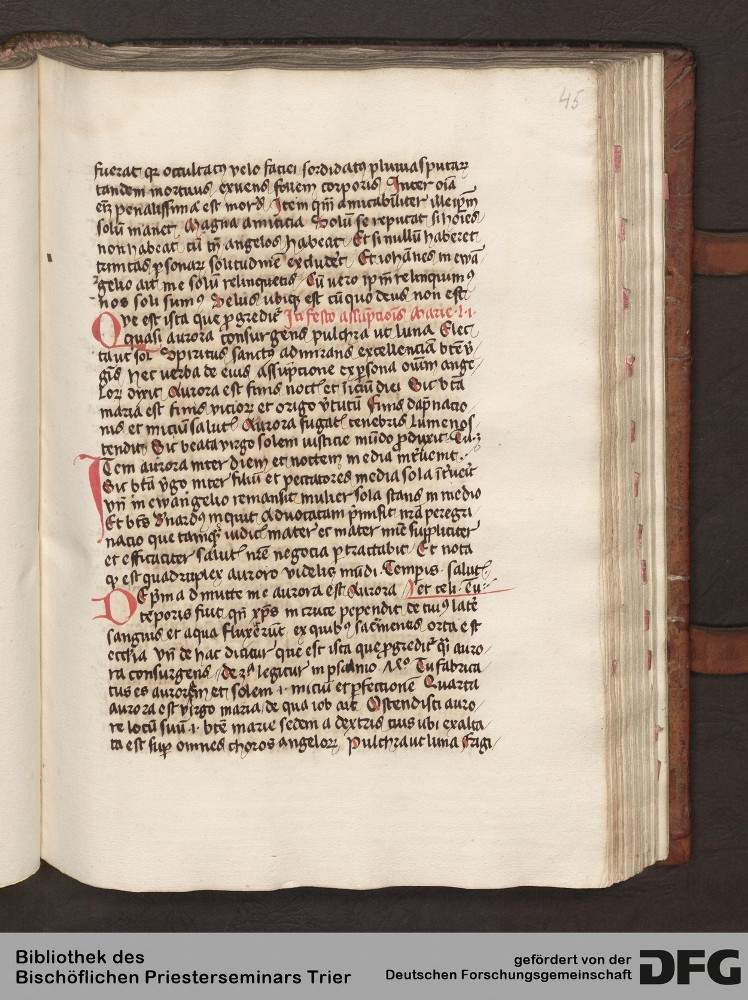 45
fuerat qr occultatus velo faciei sordidatus pluuia sputar
tandem mortuus exuens follem corporis Inter oīa
penalissima est mors Item qm̄ amicabiliter illi ip̄m
solū manet Magna amicitia Solū se reputat si hoīes
non habeat cū tn̄ angelos habeat Et si nullū haberet
trinitas ꝑsonar solitudinē excludit Et iohānes in ewā
gelio ait me solū relinquetis Cū vero ip̄m relinquimꝰ
nos soli sumꝰ Melius ubiqꝫ est cū quo deus non est
Que est ista que ꝓgreditꝰ In festo assūptiōis Marie
quasi aurora consurgens pulchra ut luna Elec
ta ut sol Spiritus sanctus admirans excellenciā btē v̄
gīs hec verba de eius assūptione ex ꝑsona oīum ange
lor dixit Aurora est finis noctꝭ et iniciū diei Sic btā
maria est finis vicior et origo v̄tutū Finis dāpnacio
nis et iniciū salutꝭ Aurora fugat tenebris lumen os
tendit Sic beata virgo solem iusticie mūdo ꝓduxit
Item aurora inter diem et noctem media inťuenit
Sic btā v̄go inter filiū et peccatores media sola īťuenit
vn̄ in ewangelio remansit mulier sola stans in medio
Et bt̄s b̄nardꝰ inquit Aduocatam p̄misit nr̄a peregri
nacio que tamqꝫ iudicꝭ mater et mater mīe suppliciter
et efficaciter salutꝭ nr̄e negocia ꝑtractabit Et nota
qꝫ est quadruplex aurora videlicꝫ mūdi Tempis salutꝭ
De p̄ma Admitte me aurora est Aurora et celi
teporis fuit qn̄ xp̄s in cruce pependit de cuiꝰ latē
sanguis et aqua fluxerūt ex quibꝰ sacm̄entis orta est
eccl̄ia vn̄ de hac dicitur que est ista que ꝓgreditꝰ q̄i auro
ra consurgens de 3ᵃ legitur in psalmo Tu fabrica
tus es auroram et solem .i. iniciū et ꝑfectionē Quarta
aurora est virgo maria de qua iob ait Ostendisti auro
re locū suū .i. btē marie sedem a dextris eius ubi exalta
ta est suꝑ omnes choros angelor Pulchra ut luna Frigi
Bibliothek des
Bischöflichen Priesterseminars Trier
gefördert von der
Deutschen Forschungsgemeinschaft
DFG